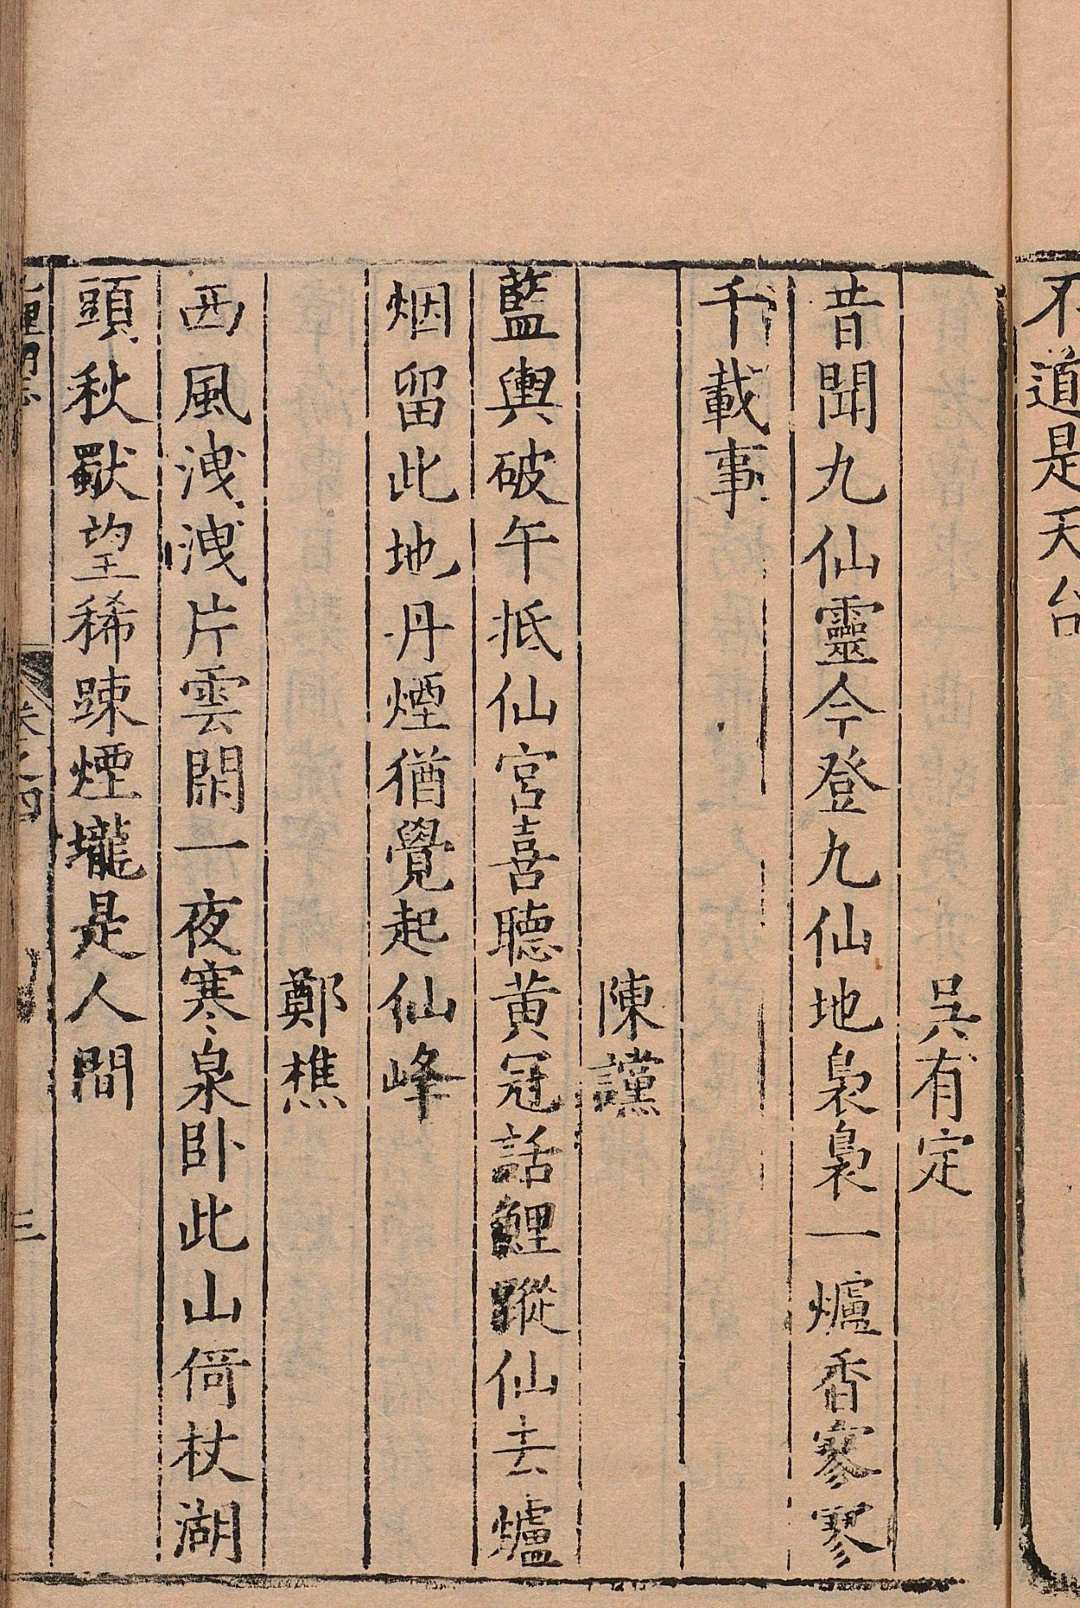 不道是天台
吳有定
昔聞九仙靈今登九仙地裊裊一爐香寥寥
千載事
陳讜
藍輿破午抵仙宮喜聽黃冠話鯉蹤仙去爐
烟留此地丹煙猶覺起仙峰
鄭樵
西風洩洩片雲閑一夜寒泉卧此山倚杖湖
頭秋獸望稀踈煙壠是人間
鯉湖志
卷之四
三